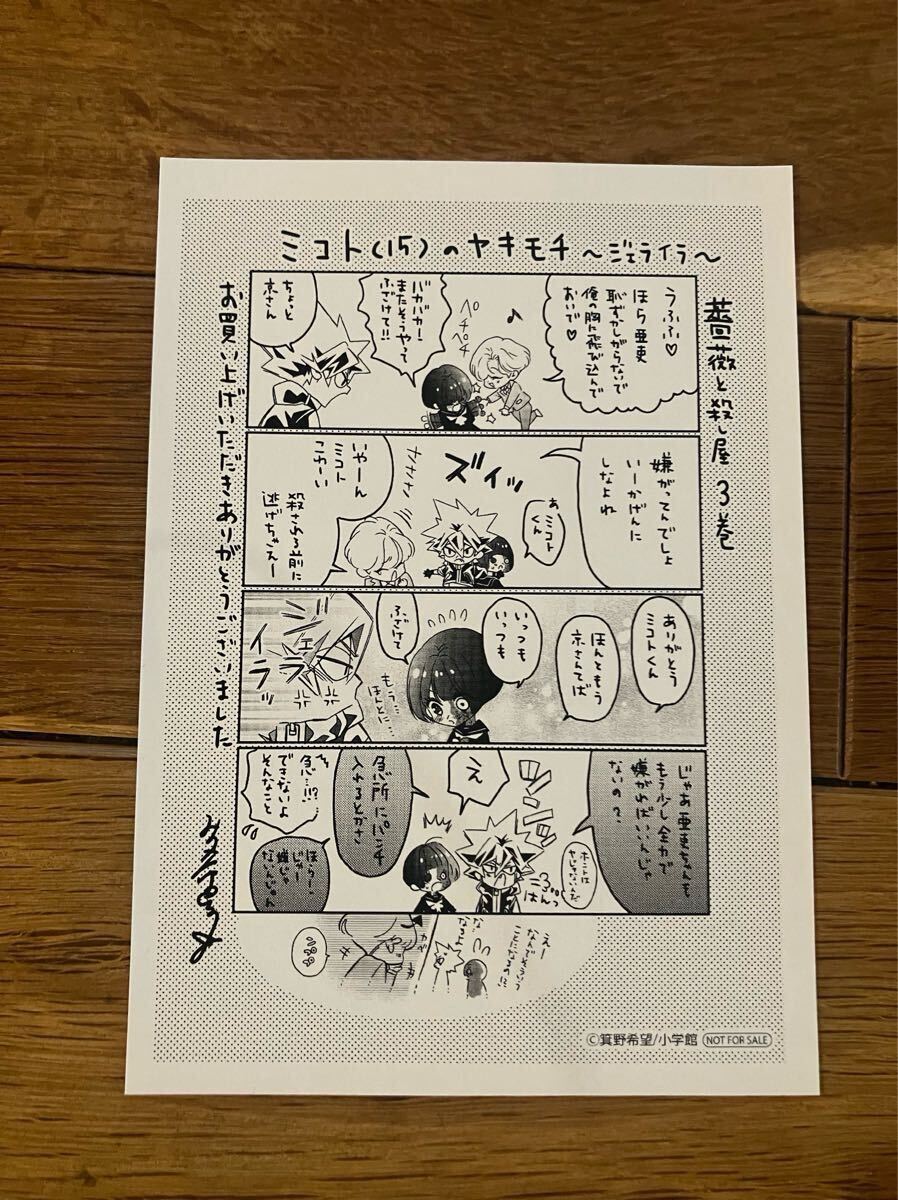 ミコト(15)のヤキモチ～ジェライラ～
薔薇と殺し屋 3巻
うふふ♡
ほら亜吏
恥ずかしがらないで
俺の胸に飛び込んで
おいで♡
♪
ペチ
ペチ
バカバカー!
またそうやって
ふざけて!!
ちょっと
京さん
嫌がってんでしょ
いーかげんに
しなよね
あ
ミコト
くん
ズイッ
ササササ
いやーん
ミコト
こわーい
殺される前に
逃げちゃえー
ありがとう
ミコトくん
ほんともう
京さんてば
いっつも
いっつも
ふざけて
もう…
ほんとに…
ジェ
ライラ
イラッ
じゃあ亜吏ちゃんも
もう少し全力で
嫌がればいいんじゃ
ないの?
ツン
ツン
え
急所にパンチ
入れるとかさ
急…!?
できないよ
そんなこと
ほらー
じゃー
嫌じゃ
ないんじゃん
えー
なんでそういう
ことになるのに
お買い上げいただきありがとうございました
©箕野希望/小学館 NOT FOR SALE